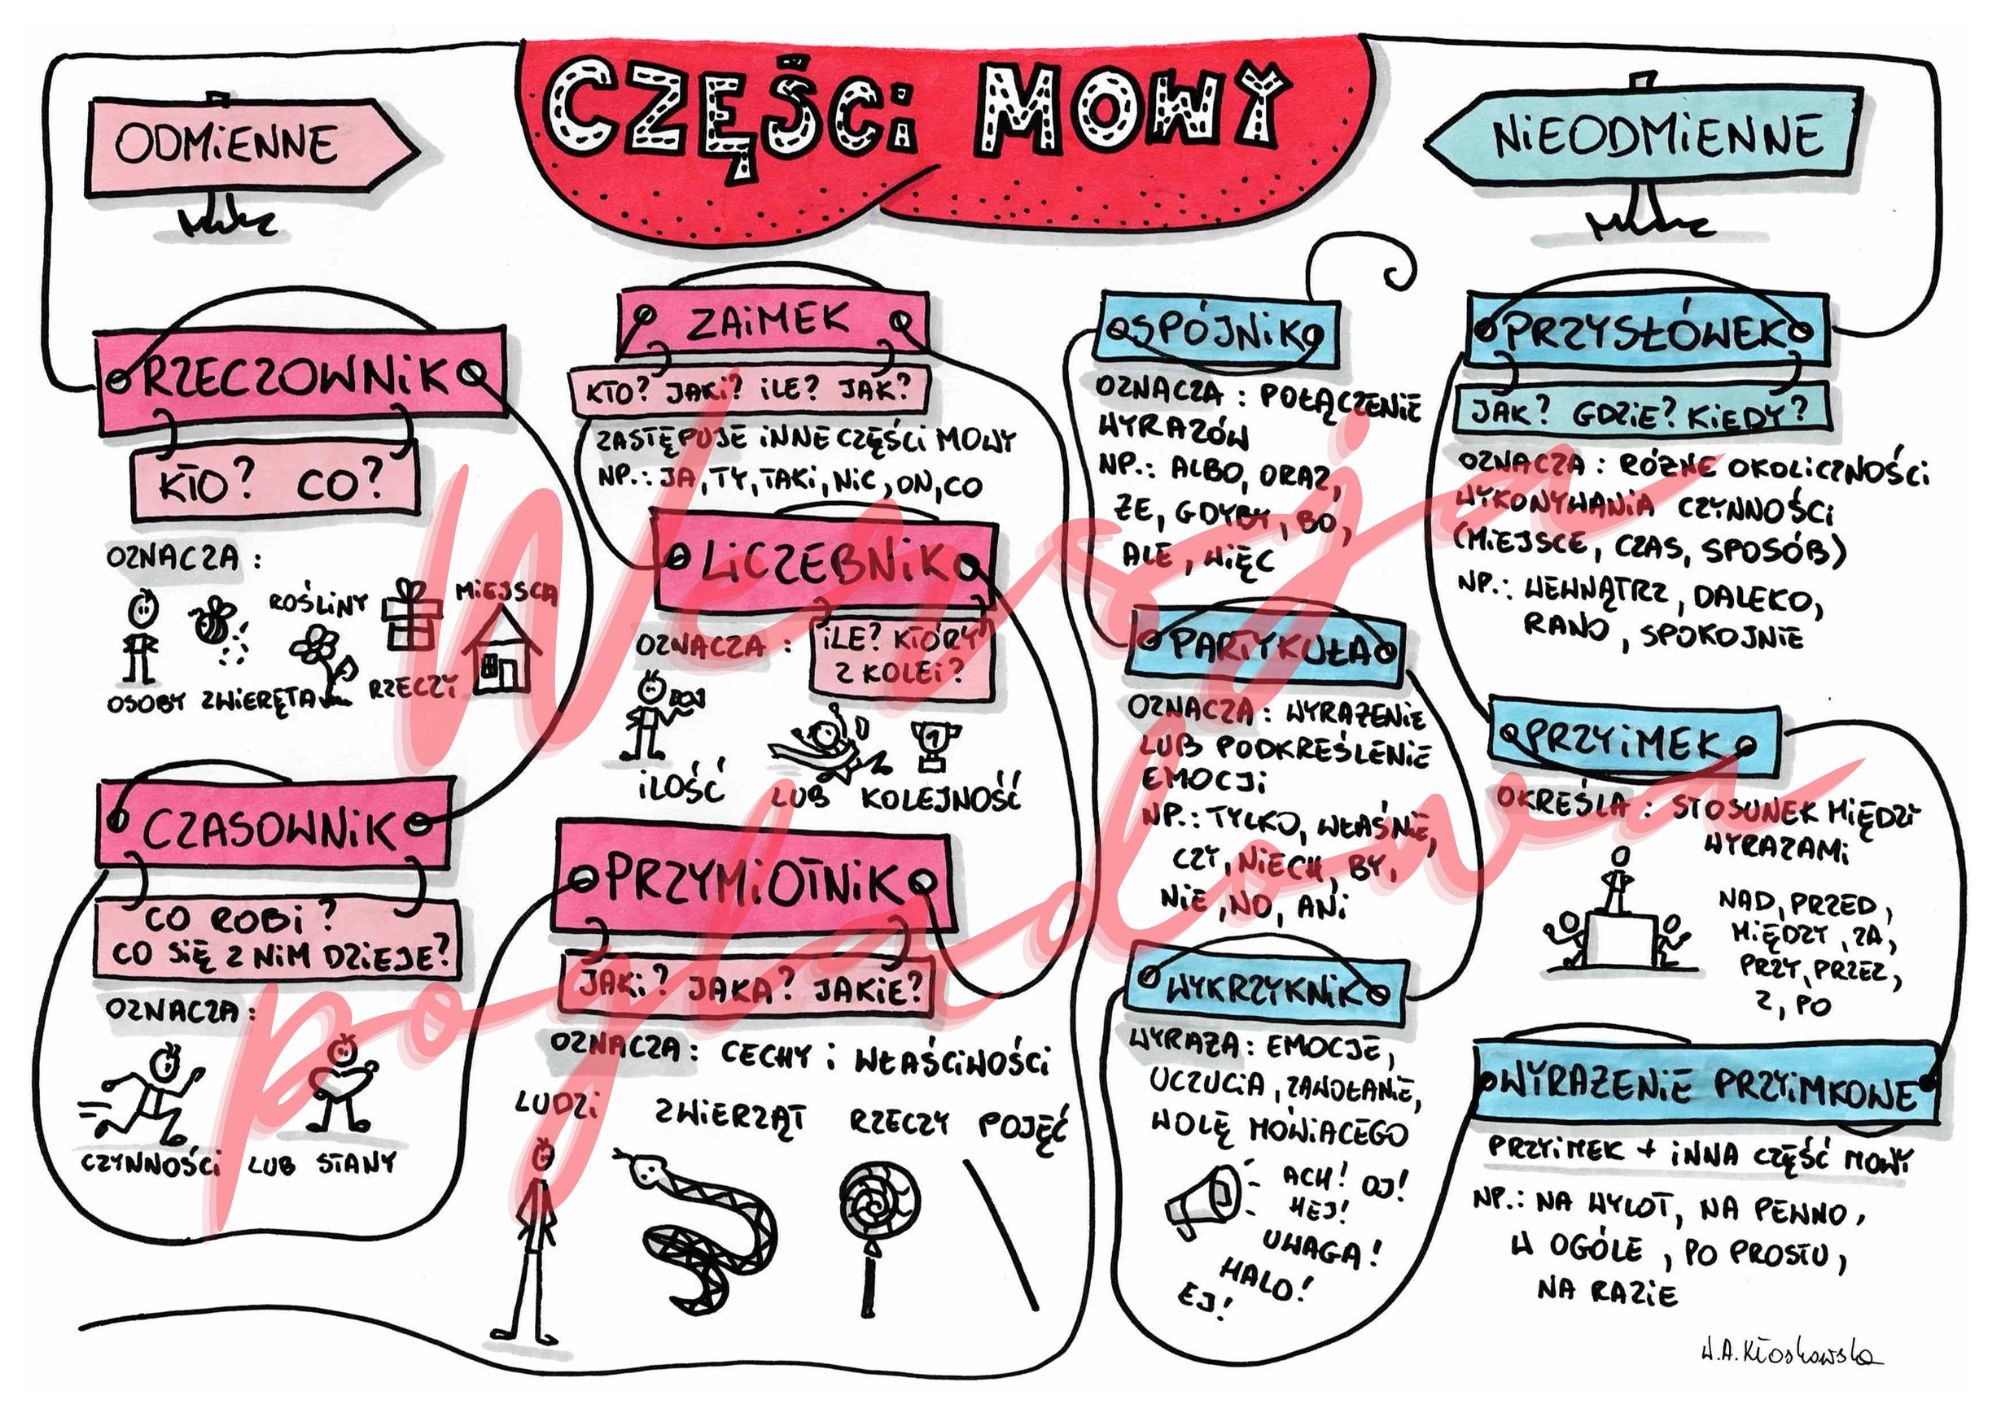 CZĘŚCi MOWY
ODMiENNE
NiEODMiENNE
RZECZOWNiK
KTO? CO?
OZNACZA:
OSOBY
ZWIERĘTA
ROŚLiNY
RZECZY
MiEJSCA
CZASOWNiK
CO ROBi?
CO SiĘ Z NiM DZiEJE?
OZNACZA:
CZYNNOŚCi LUB STANY
ZAiMEK
KTO? JAKi? iLE? JAK?
ZASTĘPUJE iNNE CZĘŚCi MOWY
NP.: JA, TY, TAKi, NiC, ON, CO
LiCZEBNiK
iLE? KTÓRY
Z KOLEi?
OZNACZA:
iLOŚĆ LUB KOLEJNOŚĆ
PRZYMiOTNiK
JAKi? JAKA? JAKiE?
OZNACZA: CECHY i WŁAŚCiWOŚCi
LUDZi ZWiERZĄT RZECZY POJĘĆ
SPÓJNiK
OZNACZA: POŁĄCZENiE
WYRAZÓW
NP.: ALBO, ORAZ,
ŻE, GDYBY, BO,
ALE, WiĘC
PARTYKUŁA
OZNACZA: WYRAŻENiE
LUB PODKREŚLENiE
EMOCJi
NP.: TYLKO, WŁAŚNiE,
CZY, NiECH, BY,
NiE, NO, ANi
WYKRZYKNiK
WYRAŻA: EMOCJE,
UCZUCiA, ZAWOŁANiE,
WOLĘ MÓWiĄCEGO
ACH! OJ!
HEJ!
UWAGA!
HALO!
EJ!
PRZYSŁÓWEK
JAK? GDZiE? KiEDY?
OZNACZA: RÓŻNE OKOLiCZNOŚCi
WYKONYWANiA CZYNNOŚCi
(MiEJSCE, CZAS, SPOSÓB)
NP.: WEWNĄTRZ, DALEKO,
RANO, SPOKOJNiE
PRZYiMEK
OKREŚLA: STOSUNEK MiĘDZY
WYRAZAMi
NAD, PRZED,
MiĘDZY, ZA,
PRZY, PRZEZ,
Z, PO
WYRAŻENiE PRZYiMKOWE
PRZYiMEK + iNNA CZĘŚĆ MOWY
NP.: NA WYLOT, NA PEWNO,
W OGÓLE, PO PROSTU,
NA RAZiE
W.A.Kłoskowska
Wersja
poglądowa